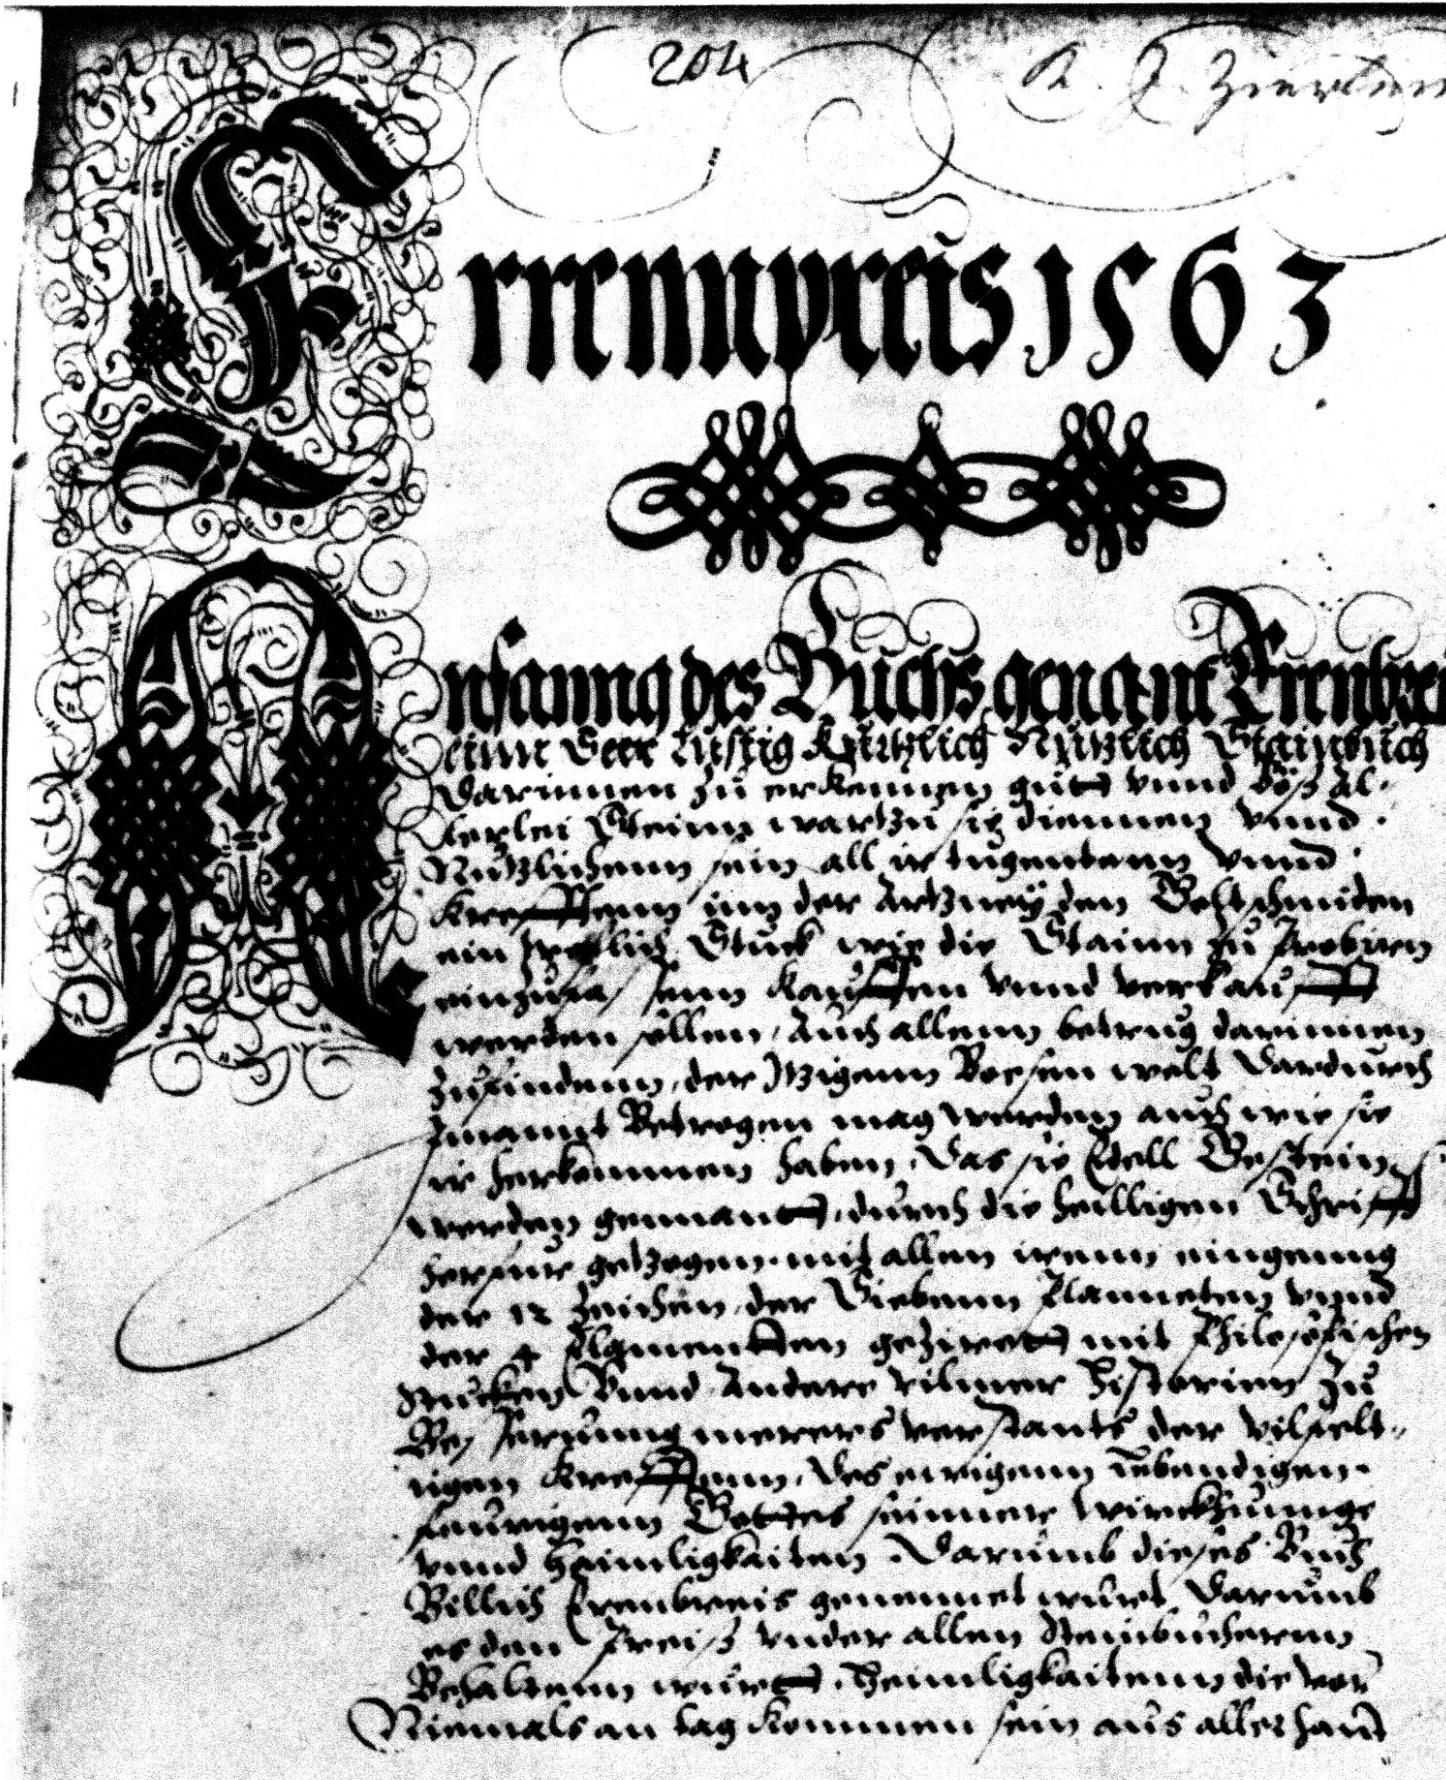 204
Errennpreis 1563
Anfanng des Buchs genant Erenbrei
einn Seer Lustig Kurtzlich Nutzlich Stainbuch
Darinnen zu erkennen gutt vnnd böß Al-
lerlei Steinn wartzu sie diennen vnnd
Nutzlichenn sein all ir tugentenn vnnd
krefftenn inn der Artzney den Goltschmiden
ein Stuck wie die Stainn zu Probiren
einzufassenn kauffen vnnd verkaufft
werden sollen, Auch allenn betrug darinnen
zufindenn, der Itzigenn Boesen welt Dardurch
Imannt Betrogen mag werden auch wie sie
ir herkommen haben, Das sie Edell Gestein
werden gennantt, durch die heilligen Schrifft
herfur getzogen mit allen irenn eingenng
der 12 Zeichen, der Siebenn Planneten vnnd
der 4 Elementten geziret mit Philosofischen
Stucken Vnnd Andere Historien zu
Besserunng merers verstants der vilfelt-
igen krefftenn, des ewigenn Lebendigen
feurigenn Gottes seinner wirckhunnge
vnnd Haimligkaiten. Darumb dieses Buch
Billich Erenbreis genennet wurt Darumb
es den Preiß vnder allen Steinbuchernn
Behaltenn wurtt, Heimligkaitenn die vor
Niemals an tag kommen sein aus allerhant